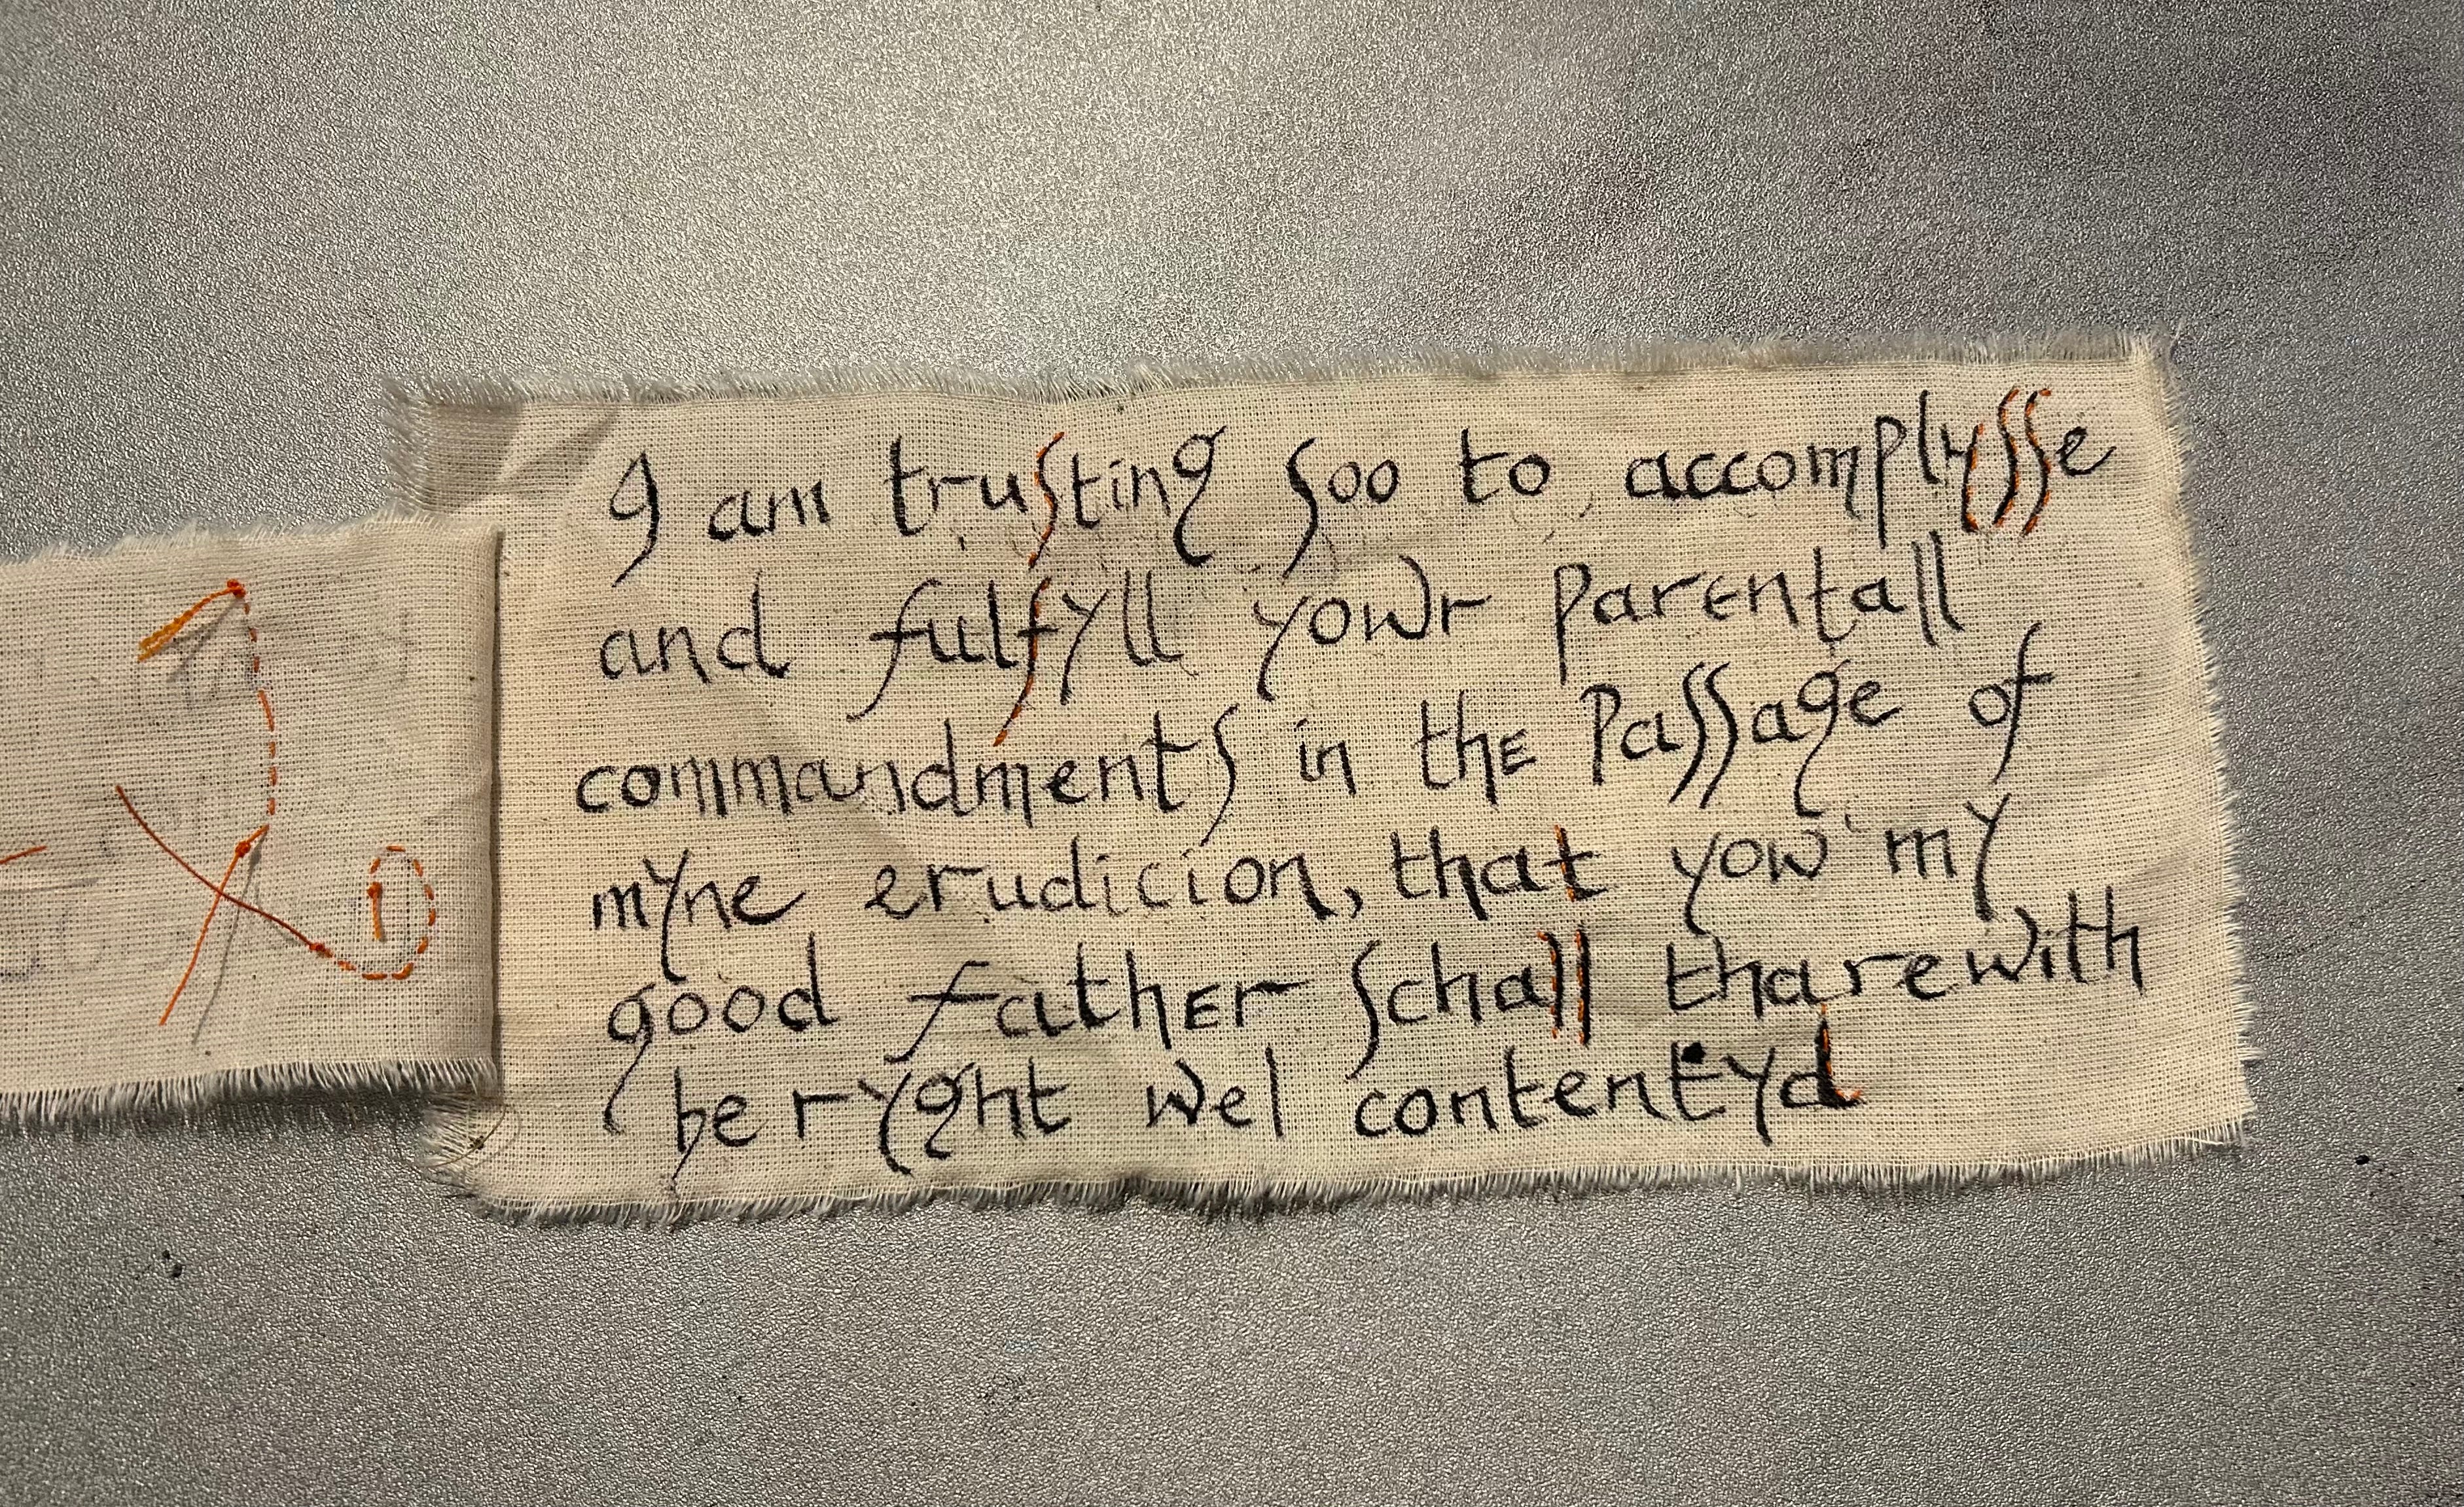 I am truſting ſoo to accomplyſſe
and fulfyll yowr parentall
commandmentſ in the paſſage of
myne erudicion, that yow my
good father ſchall tharewith
be ryght wel contentyd
1